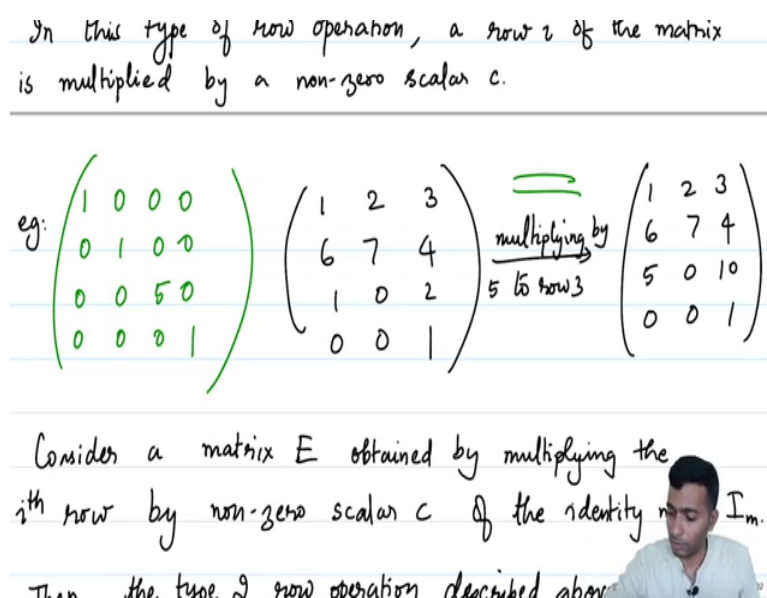 In this type of row operation, a row i of the matrix
is multiplied by a non-zero scalar c.
eg:
1 0 0 0
0 1 0 0
0 0 5 0
0 0 0 1
1 2 3
6 7 4
1 0 2
0 0 1
=
multiplying by
5 to row 3
1 2 3
6 7 4
5 0 10
0 0 1
Consider a matrix E obtained by multiplying the
ith row by non-zero scalar c of the identity Im.
Then the type 2 row operation described above